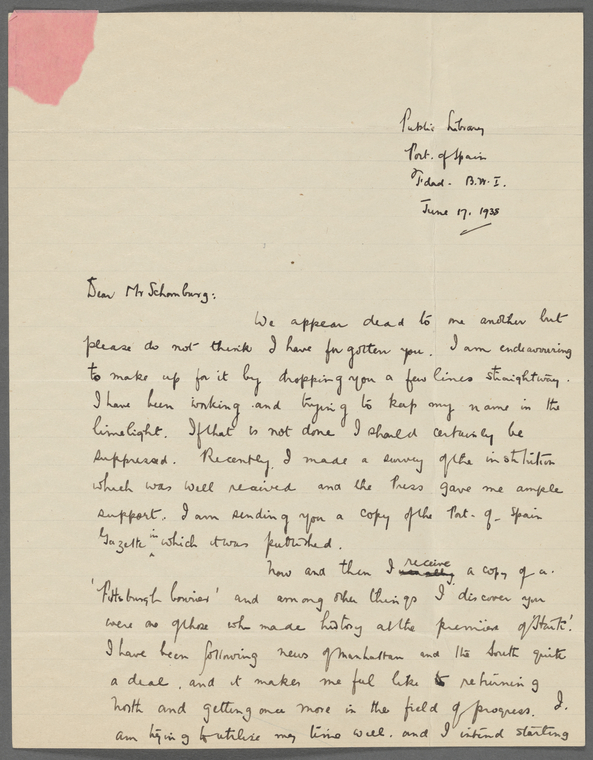 Public Library
Port. of Spain
T'dad. B.W.I.
June 17. 1935
Dear Mr Schomburg:
We appear dead to one another but
please do not think I have forgotten you. I am endeavouring
to make up for it by dropping you a few lines straightway.
I have been working and trying to keep my name in the
limelight. If that is not done I should certainly be
suppressed. Recently, I made a survey of the institution
which was well received and the Press gave me ample
support. I am sending you a copy of the Port-of-Spain
Gazette in which it was published.
Now and then I receive a copy of a
'Pittsburgh Courier' and among other things I discover you
were one of those who made history at the premiere of
I have been following news of Manhattan and the South quite
a deal, and it makes me feel like returning
North and getting once more in the field of progress. I.
am trying to utilise my time well. and I intend starting